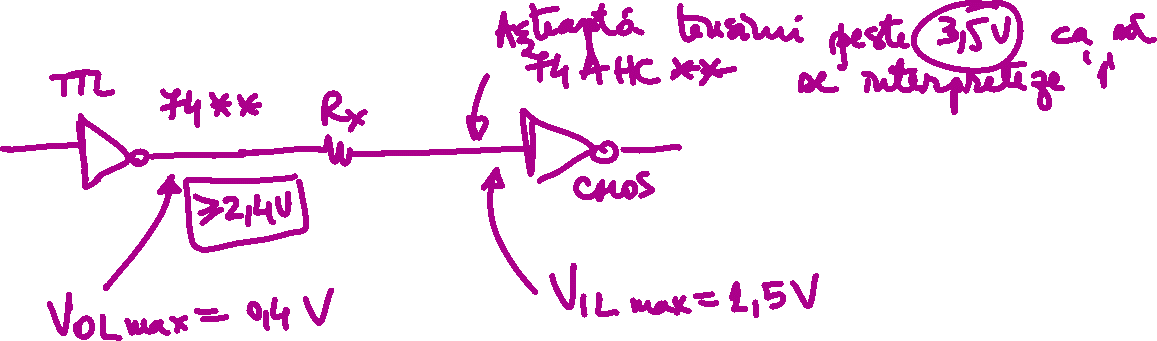 Așteaptă tensiuni peste 3,5V ca să
74AHC** se interpreteze '1'
TTL
74**
Rx
≥2,4V
CMOS
VOLmax = 0,4 V
VILmax = 1,5V